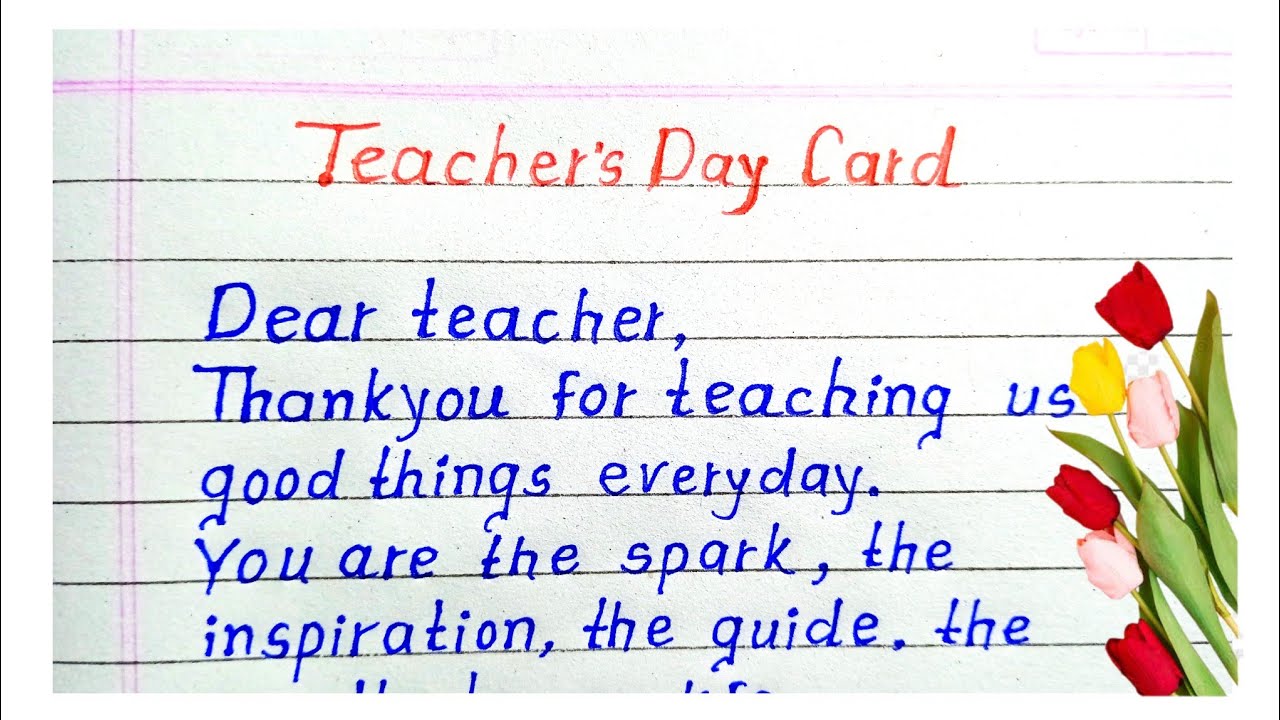 Teacher's Day Card
Dear teacher,
Thankyou for teaching us
good things everyday.
You are the spark, the
inspiration, the guide. the